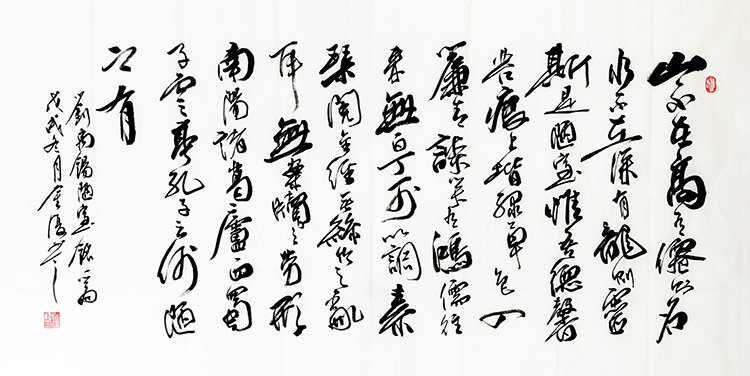 山不在高有僊則名
水不在深有龍則靈
斯是陋室惟吾德馨
苔痕上堦綠草色入
簾青談笑有鴻儒往
來無白丁可以調素
琴閱金經無絲竹之亂
耳無案牘之勞形
南陽諸葛廬西蜀
子雲亭孔子云何陋
之有
劉禹錫陋室銘一篇
戊戌